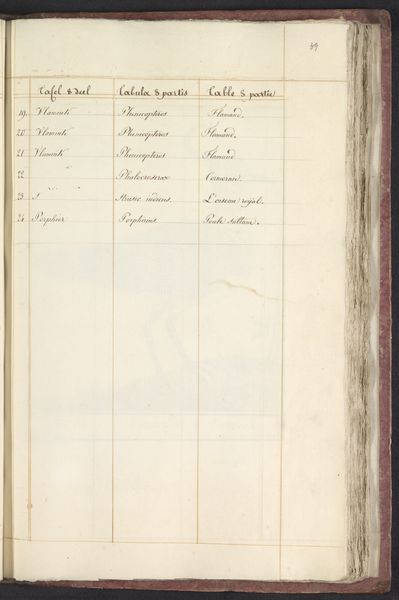 39
Tafel 8 deel Tabula 8 partis Table 8 partie
19. Vlamink Phœnicopteros Flamand.
20. Vlamink Phœnicopteros Flamand.
21 Vlamink Phœnicopteros Flamand
22 Phalocrocorax Cormoran.
23 Struthio L'oiseau royal.
24 Porphier Porphirius Poule Sultane.